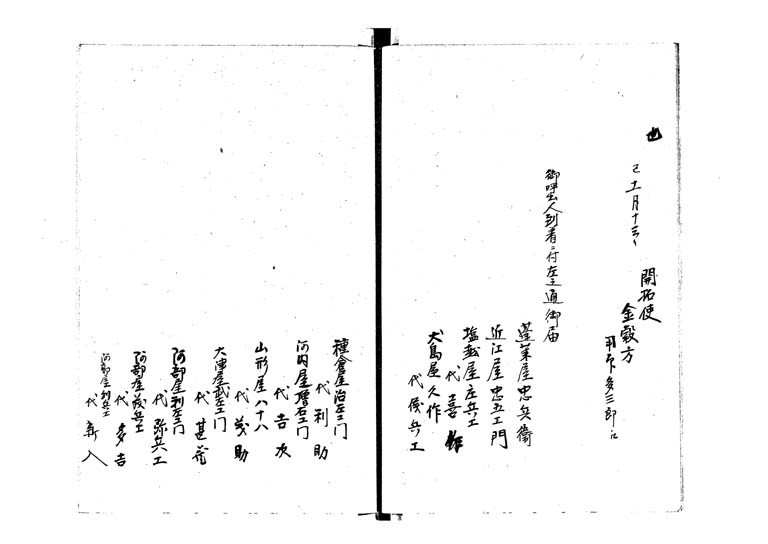 也
己十一月十三日
開拓使
金穀方
御呼出人到着ニ付左之通御届
蓬莱屋忠兵衛
近江屋忠五エ門
塩越屋庄兵エ
代喜作
犬島屋久作
代儀兵エ
種倉屋治左エ門
代利助
河内屋増右エ門
代吉次
山形屋八十八
代茂助
大津屋武左エ門
代甚蔵
阿部屋利左エ門
代弥兵エ
阿部屋茂兵エ
代多吉
阿部屋利兵エ
代新八